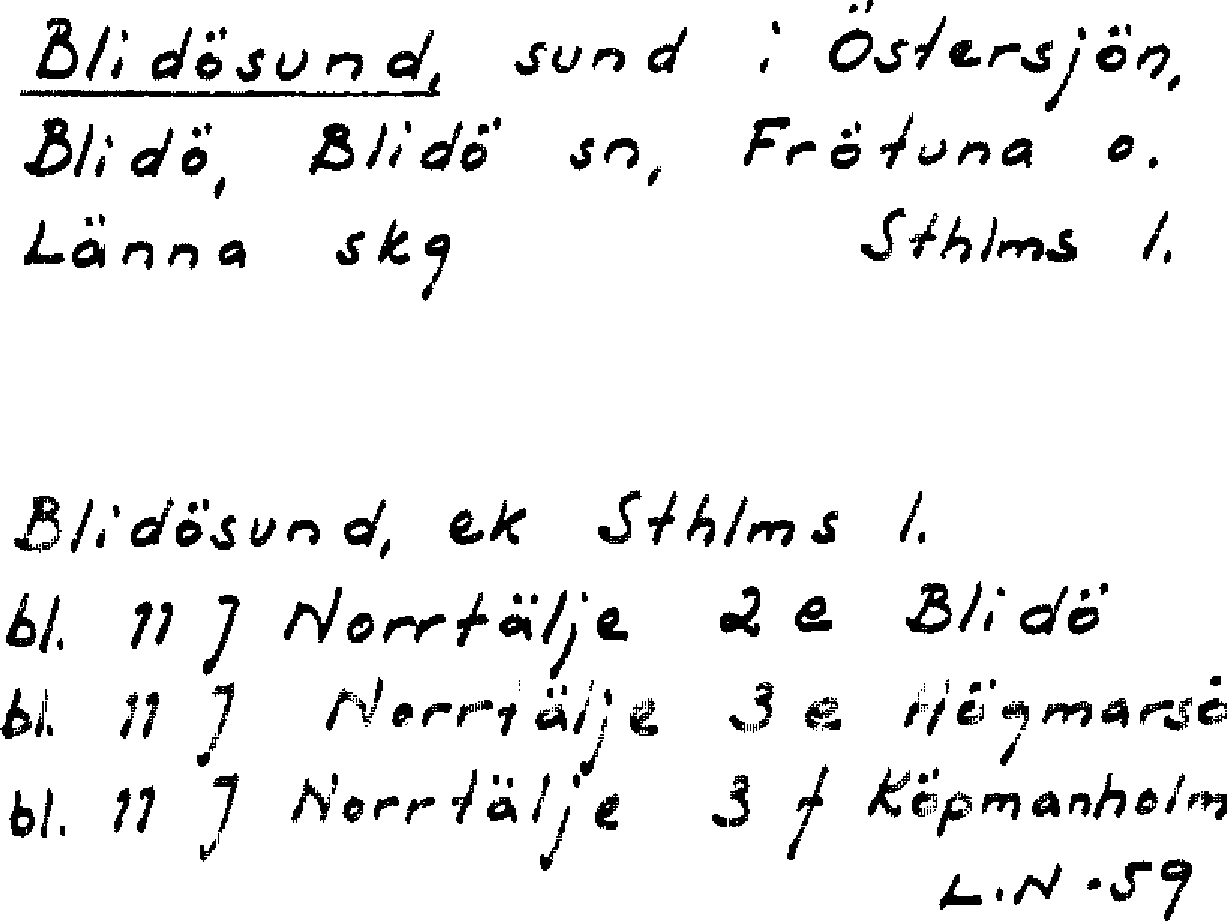 Blidösund, sund i Östersjön,
Blidö, Blidö sn, Frötuna o.
Länna skg Sthlms l.
Blidösund, ek Sthlms l.
bl. 11 J Norrtälje 2 e Blidö
bl. 11 J Norrtälje 3 e Högmarsö
bl. 11 J Norrtälje 3 f Köpmanholm
L.N -59